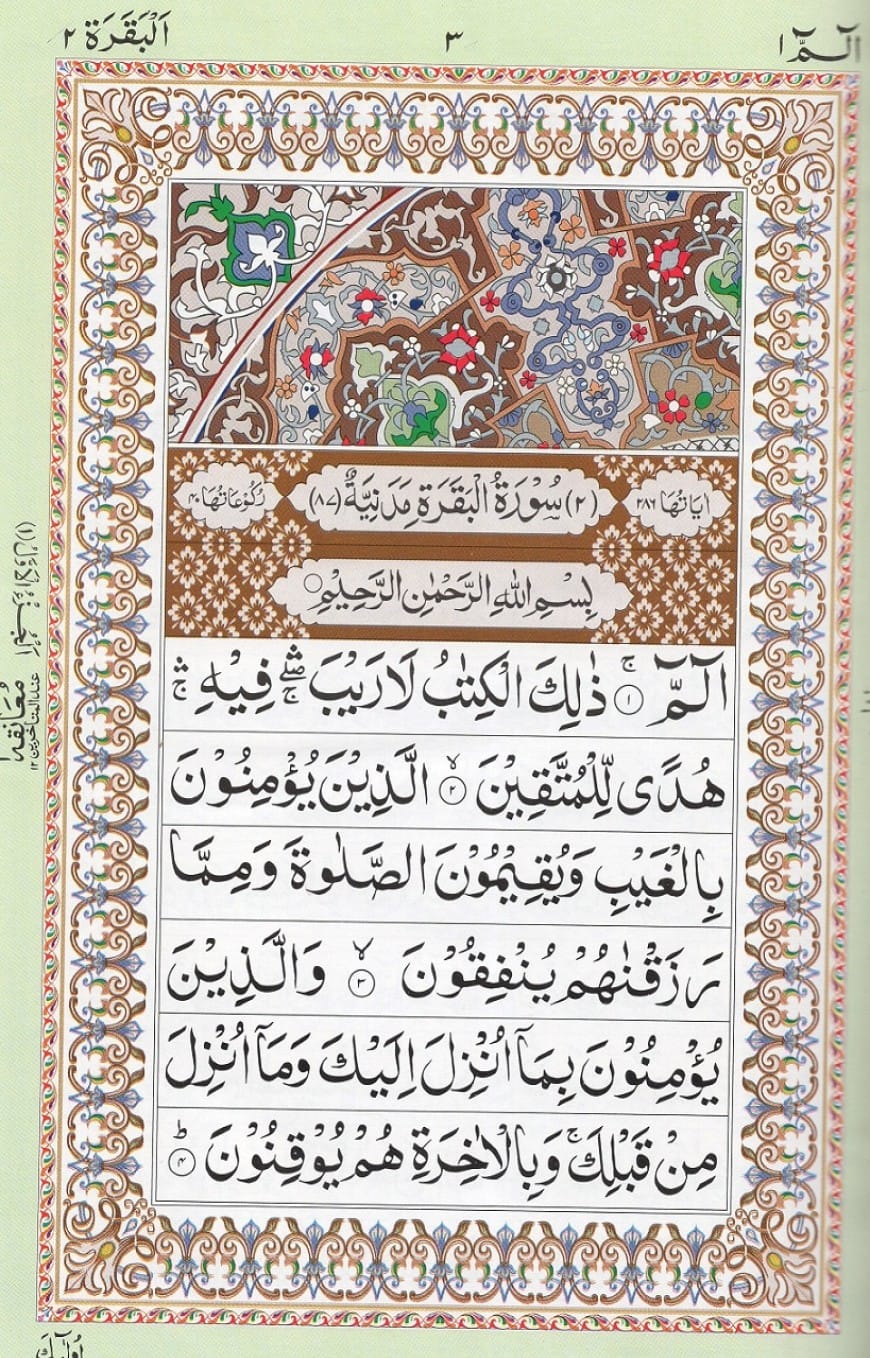 الٓمّٓ ١
٣
اَلْبَقَرَة ٢
اٰیَاتُهَا ٢٨٦
(٢) سُوْرَةُ الْبَقَرَةِ مَدَنِیَّةٌ (٨٧)
رُكُوْعَاتُهَا ٤٠
بِسْمِ اللّٰهِ الرَّحْمٰنِ الرَّحِیْمِ
الٓمّٓ ۚ ١ ذٰلِكَ الْكِتٰبُ لَا رَیْبَ ۛۖۚ فِیْهِ ۛۚ
هُدًی لِّلْمُتَّقِیْنَ ۙ ٢ الَّذِیْنَ یُؤْمِنُوْنَ
بِالْغَیْبِ وَیُقِیْمُوْنَ الصَّلٰوةَ وَمِمَّا
رَزَقْنٰهُمْ یُنْفِقُوْنَ ۙ ٣ وَالَّذِیْنَ
یُؤْمِنُوْنَ بِمَاۤ اُنْزِلَ اِلَیْكَ وَمَاۤ اُنْزِلَ
مِنْ قَبْلِكَ ۚ وَبِالْاٰخِرَةِ هُمْ یُوْقِنُوْنَ ؕ ٤
مُعَانَقَه ١
عند المتأخرین ١٢
اُولٰٓئِكَ